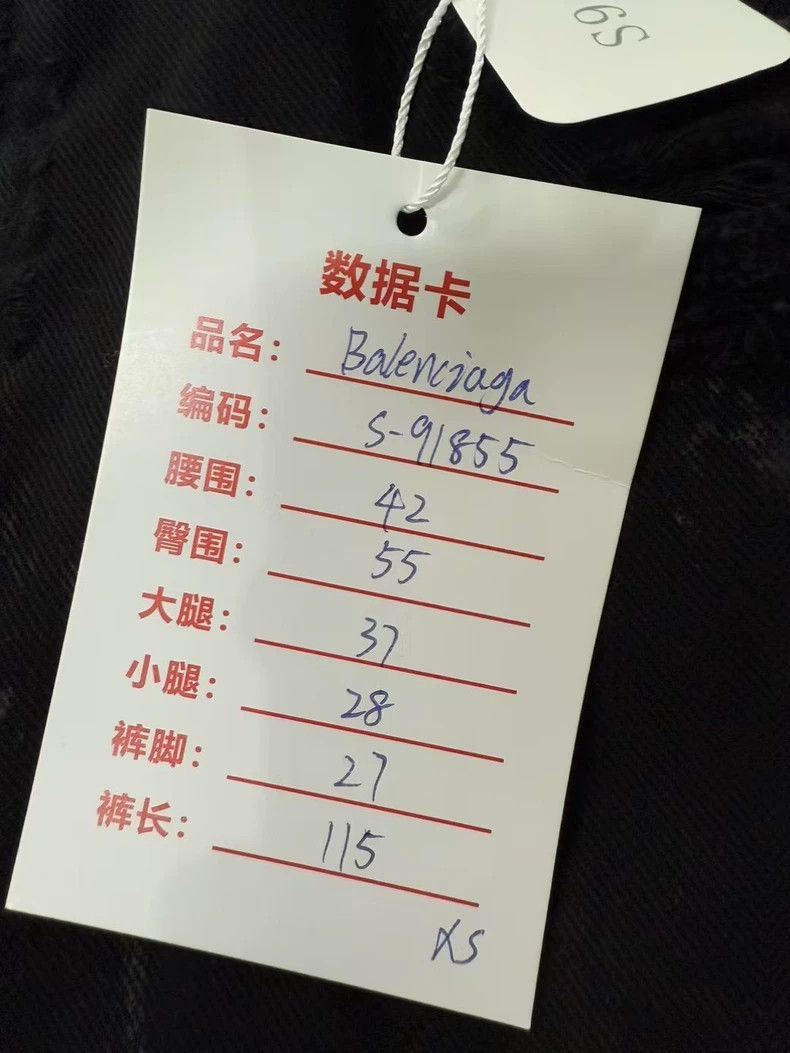 6S
数据卡
品名: Balenciaga
编码: S-91855
腰围: 42
臀围: 55
大腿: 37
小腿: 28
裤脚: 27
裤长: 115
XS